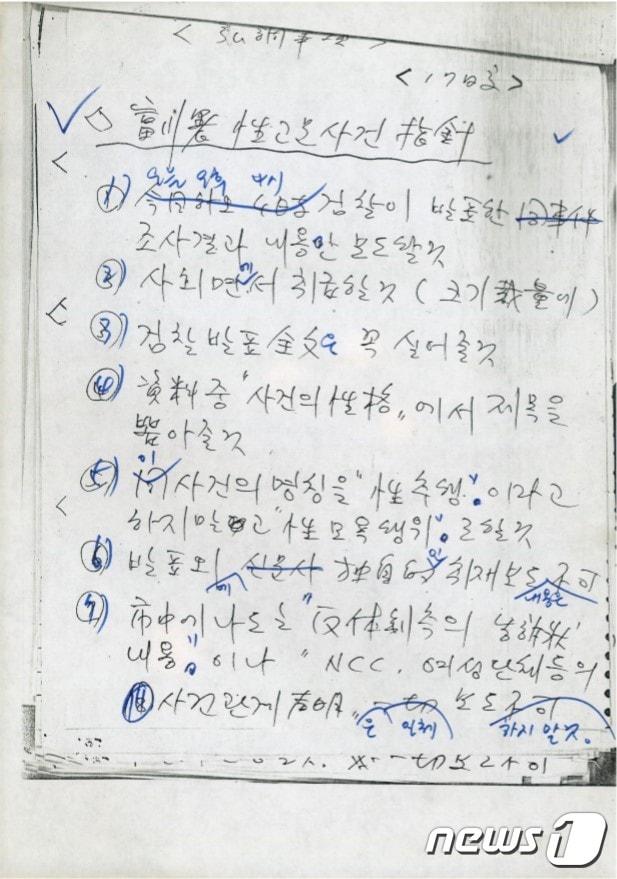 < 17日字 >
◇ 富川署 性고문사건 指針
오늘 오후 4시
1) 今日하오 4時 검찰이 발표한
조사결과 내용만 보도할것
2) 사회면에서 취급할것 (크기 裁量에)
3) 검찰발표全文은 꼭 실어줄것
4) 資料중 "사건의 性格"에서 제목을
뽑아줄것
5) 이 사건의 명칭을 "性추행"이라고
하지말고 "性모욕행위"로 할것
6) 발표외에 신문사 独自的인 취재보도 내용은 不可
7) 市中에 나도는 "反体制측의 告訴狀
내용"이나 "NCC, 여성단체등의
사건관계 声明"은 일체 一切 보도不可 하지 말것.
news1